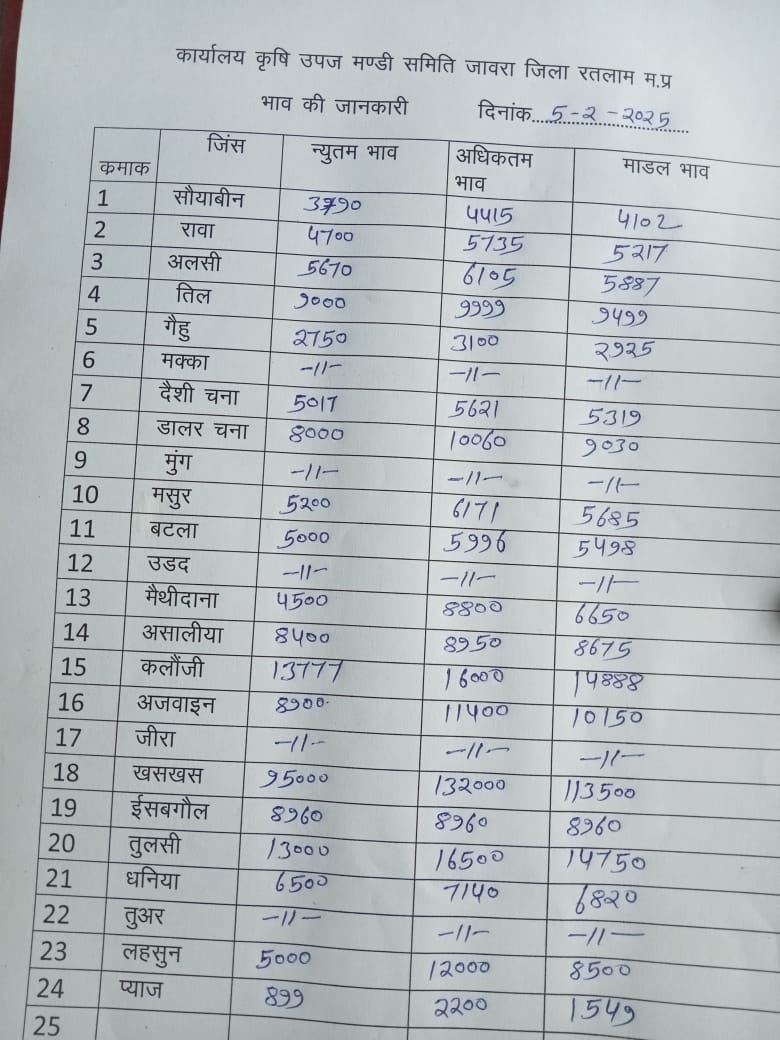 कार्यालय कृषि उपज मण्डी समिति जावरा जिला रतलाम म.प्र
भाव की जानकारी दिनांक....5-2-2025
कमाक जिंस न्युतम भाव अधिकतम भाव माडल भाव
1 सौयाबीन 3790 4415 4102
2 रावा 4700 5735 5217
3 अलसी 5670 6105 5887
4 तिल 9000 9999 9499
5 गैहु 2750 3100 2925
6 मक्का -11- -11- -11-
7 दैशी चना 5017 5621 5319
8 डालर चना 8000 10060 9030
9 मुंग -11- -11- -11-
10 मसुर 5200 6171 5685
11 बटला 5000 5996 5498
12 उडद -11- -11- -11-
13 मैथीदाना 4500 8800 6650
14 असालीया 8400 8950 8675
15 कलौंजी 13777 16000 14888
16 अजवाइन 8900 11400 10150
17 जीरा -11- -11- -11-
18 खसखस 95000 132000 113500
19 ईसबगौल 8960 8960 8960
20 तुलसी 13000 16500 14750
21 धनिया 6500 7140 6820
22 तुअर -11- -11- -11-
23 लहसुन 5000 12000 8500
24 प्याज 899 2200 1549
25